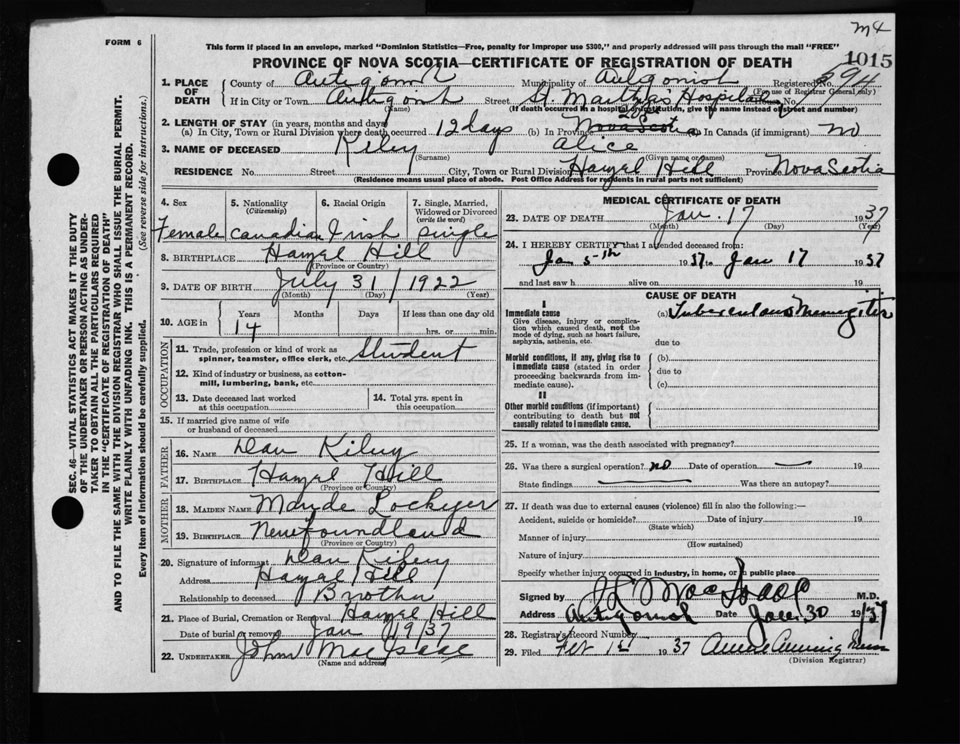 M4
FORM 6
This form if placed in an envelope, marked "Dominion Statistics—Free, penalty for improper use $300," and properly addressed will pass through the mail "FREE"
PROVINCE OF NOVA SCOTIA—CERTIFICATE OF REGISTRATION OF DEATH 1015
1. PLACE OF DEATH County of Antigonish Municipality of Antigonish Registered No. (For use of Registrar General only)
If in City or Town Antigonish (Name) Street St. Martha's Hospital House No.
(If death occurred in a hospital or institution, give the name instead of street and number)
2. LENGTH OF STAY (in years, months and days)
(a) In City, Town or Rural Division where death occurred 12 days (b) In Province Nova Scotia (c) In Canada (if immigrant) no
3. NAME OF DECEASED Kiley (Surname) Alice (Given name or names)
RESIDENCE No. Street City, Town or Rural Division Hazel Hill Province Nova Scotia
(Residence means usual place of abode. Post Office Address for residents in rural parts not sufficient)
4. Sex Female
5. Nationality (Citizenship) Canadian
6. Racial Origin Irish
7. Single, Married, Widowed or Divorced (write the word) Single
8. BIRTHPLACE Hazel Hill (Province or Country)
9. DATE OF BIRTH July 31 / 1922 (Month) (Day) (Year)
10. AGE in Years 14 Months Days If less than one day old hrs. or min.
OCCUPATION
11. Trade, profession or kind of work as spinner, teamster, office clerk, etc. Student
12. Kind of industry or business, as cotton-mill, lumbering, bank, etc.
13. Date deceased last worked at this occupation
14. Total yrs. spent in this occupation
15. If married give name of wife or husband of deceased
FATHER
16. NAME Dan Kiley
17. BIRTHPLACE Hazel Hill (Province or Country)
MOTHER
18. MAIDEN NAME Maude Lockyer
19. BIRTHPLACE Newfoundland (Province or Country)
20. Signature of informant Dan Kiley
Address Hazel Hill
Relationship to deceased Brother
21. Place of Burial, Cremation or Removal Hazel Hill
Date of burial or removal Jan 1937
22. UNDERTAKER John MacIsaac (Name and address)
MEDICAL CERTIFICATE OF DEATH
23. DATE OF DEATH Jan. 17 1937 (Month) (Day) (Year)
24. I HEREBY CERTIFY that I attended deceased from:
Jan 5th 1937 to Jan 17 1937
and last saw h alive on 19
CAUSE OF DEATH
I
Immediate cause (a) Tuberculous Meningitis
Give disease, injury or complication which caused death, not the mode of dying, such as heart failure, asphyxia, asthenia, etc.
due to
Morbid conditions, if any, giving rise to immediate cause (stated in order proceeding backwards from immediate cause).
(b)
due to
(c)
II
Other morbid conditions (if important) contributing to death but not causally related to immediate cause.
25. If a woman, was the death associated with pregnancy?
26. Was there a surgical operation? no Date of operation — 19
State findings Was there an autopsy?
27. If death was due to external causes (violence) fill in also the following:—
Accident, suicide or homicide? Date of injury 19
(State which)
Manner of injury
(How sustained)
Nature of injury
Specify whether injury occurred in industry, in home, or in public place
Signed by MacIsaac M.D.
Address Antigonish Date Jan. 30 19/37
28. Registrar's Record Number
29. Filed Feb 1st 1937
(Division Registrar)
SEC. 46—VITAL STATISTICS ACT MAKES IT THE DUTY
OF THE UNDERTAKER OR PERSON ACTING AS UNDERTAKER TO OBTAIN ALL THE PARTICULARS REQUIRED
IN THE "CERTIFICATE OF REGISTRATION OF DEATH"
AND TO FILE THE SAME WITH THE DIVISION REGISTRAR WHO SHALL ISSUE THE BURIAL PERMIT.
WRITE PLAINLY WITH UNFADING INK. THIS IS A PERMANENT RECORD.
Every item of information should be carefully supplied. (See reverse side for instructions.)